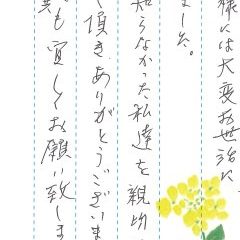 様には大変お世話に
ました。
知らなかった私達を親切
て頂きありがとうございま
も宜しくお願い致しま